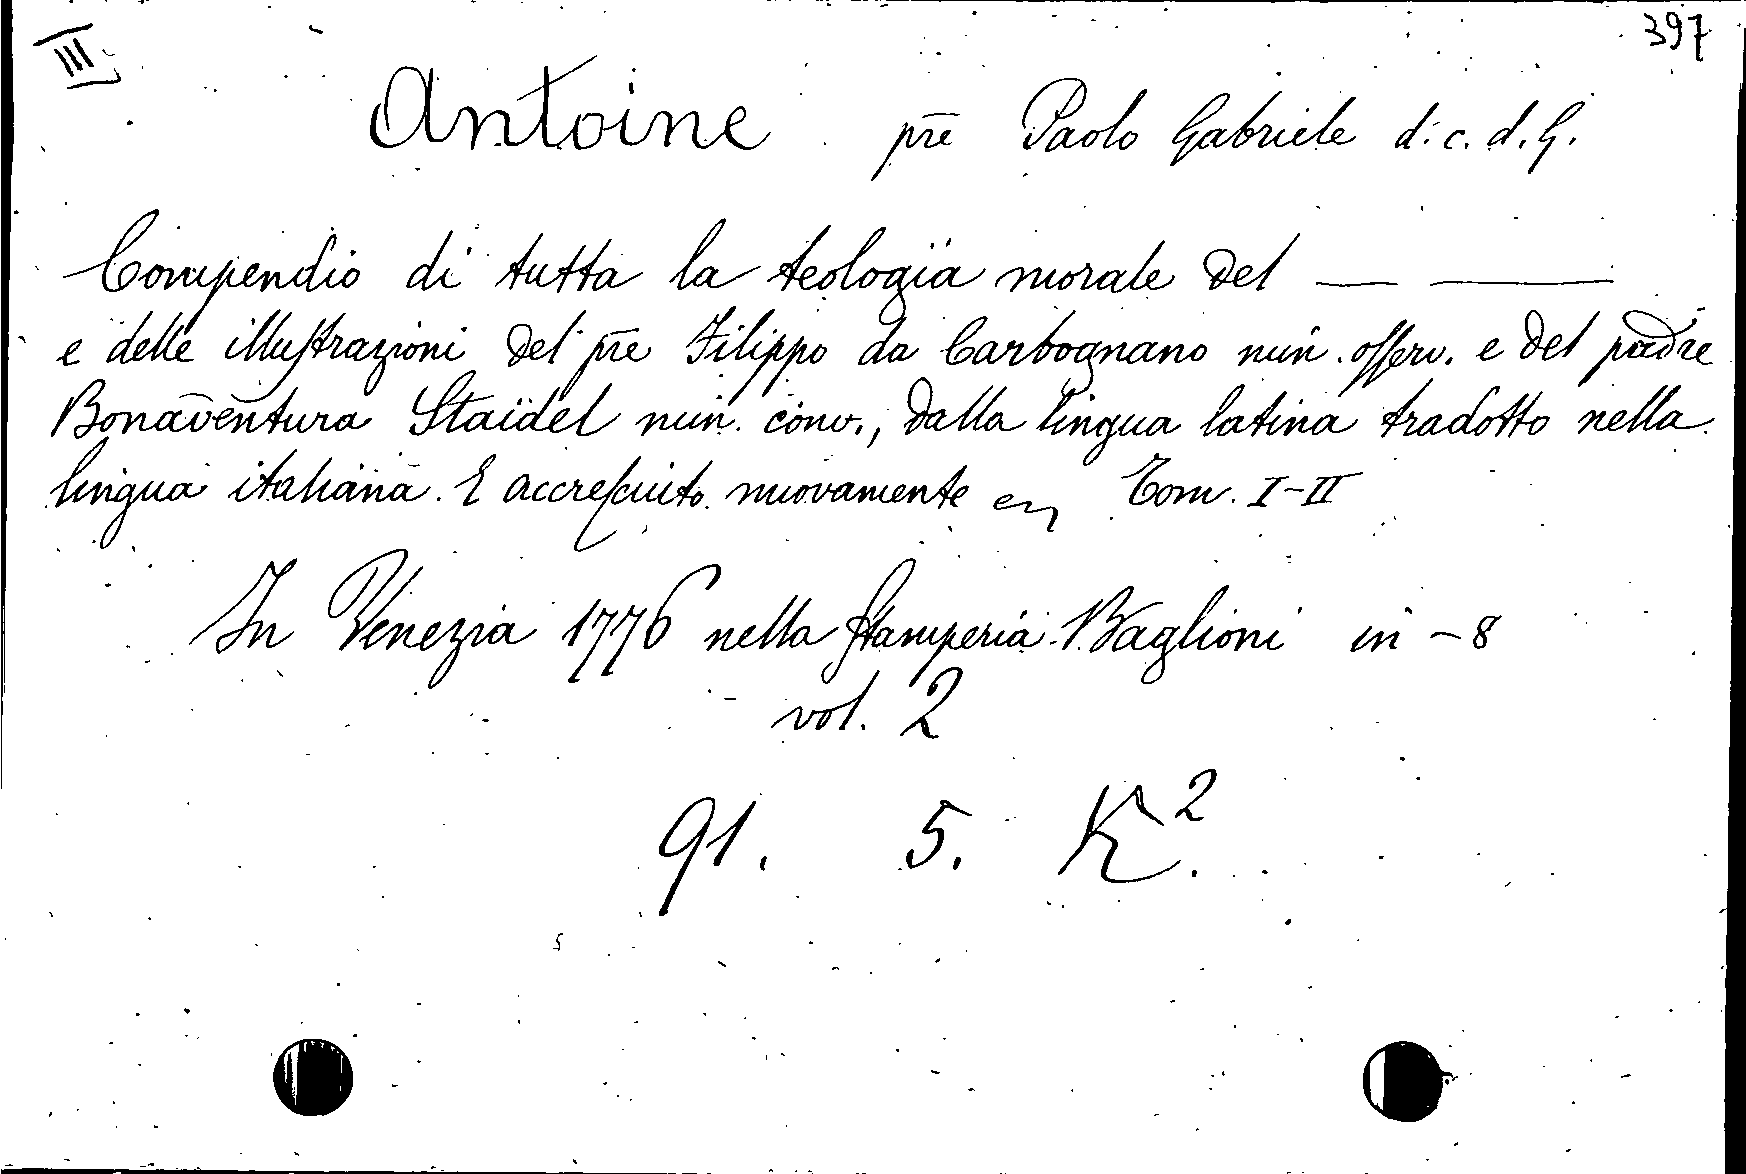 III
397
Antoine pre Paolo Gabriele d. c. d. G.
Compendio di tutta la teologia morale del — —
e delle illustrazioni del pre Filippo da Carbognano min. osserv. e del padre
Bonaventura Staidel min. conv., dalla lingua latina tradotto nella
lingua italiana. E accresciuto nuovamente Tom. I-II
In Venezia 1776 nella stamperia Baglioni in -8
vol. 2
91. 5. K².